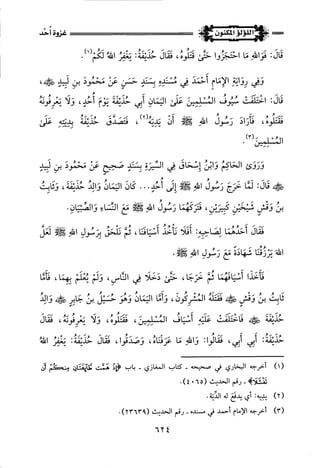 اللؤلؤ المكنون
غزوة أحد
قَالَ: فَوَاللهِ مَا احْتَجَزُوا حَتَّى قَتَلُوهُ، فَقَالَ حُذَيْفَةُ: يَغْفِرُ اللهُ لَكُمْ(١).
وَفِي رِوَايَةِ الإِمَامِ أَحْمَدَ فِي مُسْنَدِهِ بِسَنَدٍ حَسَنٍ عَنْ مَحْمُودَ بنِ لَبِيدٍ ﷺ،
قَالَ: اخْتَلَفَتْ سُيُوفُ المُسْلِمِينَ عَلَى اليَمَانِ أَبِي حُذَيْفَةَ يَوْمَ أُحُدٍ، وَلَا يَعْرِفُونَهُ
فَقَتَلُوهُ، فَأَرَادَ رَسُولُ اللهِ ﷺ أَنْ يَدِيَهُ(٢)، فَتَصَدَّقَ حُذَيْفَةُ بِدِيَتِهِ عَلَى
المُسْلِمِينَ(٣).
وَرَوَى الحَاكِمُ وَابْنُ إِسْحَاقَ فِي السِّيرَةِ بِسَنَدٍ صَحِيحٍ عَنْ مَحْمُودِ بنِ لَبِيدٍ
قَالَ: لَمَّا خَرَجَ رَسُولُ اللهِ ﷺ إِلَى أُحُدٍ... كَانَ اليَمَانُ وَالِدُ حُذَيْفَةَ، وَثَابِتُ
بنُ وَقْشٍ شَيْخَيْنِ كَبِيرَيْنِ، فَتَرَكَهُمَا رَسُولُ اللهِ ﷺ مَعَ النِّسَاءِ وَالصِّبْيَانِ.
فَقَالَ أَحَدُهُمَا لِصَاحِبِهِ: أَفَلَا نَأْخُذُ أَسْيَافَنَا، ثُمَّ نَلْحَقُ بِرَسُولِ اللهِ ﷺ لَعَلَّ
اللهَ يَرْزُقُنَا شَهَادَةً مَعَ رَسُولِ اللهِ ﷺ.
فَأَخَذَا أَسْيَافَهُمَا ثُمَّ خَرَجَا، حَتَّى دَخَلَا فِي النَّاسِ، وَلَمْ يُعْلَمْ بِهِمَا، فَأَمَّا
ثَابِتُ بنُ وَقْشٍ فَقَتَلَهُ المُشْرِكُونَ، وَأَمَّا اليَمَانُ وَهُوَ حُسَيْلُ بنُ جَابِرٍ وَالِدُ
حُذَيْفَةَ فَاخْتَلَفَتْ عَلَيْهِ أَسْيَافُ المُسْلِمِينَ، فَقَتَلُوهُ، وَلَا يَعْرِفُونَهُ، فَقَالَ
حُذَيْفَةُ: أَبِي أَبِي، فَقَالُوا: وَاللهِ مَا عَرَفْنَاهُ، وَصَدَقُوا، فَقَالَ حُذَيْفَةُ: يَغْفِرُ اللهُ
(١) أخرجه البخاري في صحيحه ـ كتاب المغازي ـ باب ﴿إِذْ هَمَّت طَّائِفَتَانِ مِنكُمْ أَن
تَفْشَلَا﴾ ـ رقم الحديث (٤٠٦٥).
(٢) يديه: أي يدفع له الدِّيَة.
(٣) أخرجه الإمام أحمد في مسنده ـ رقم الحديث (٢٣٦٣٩).
٦٢٤